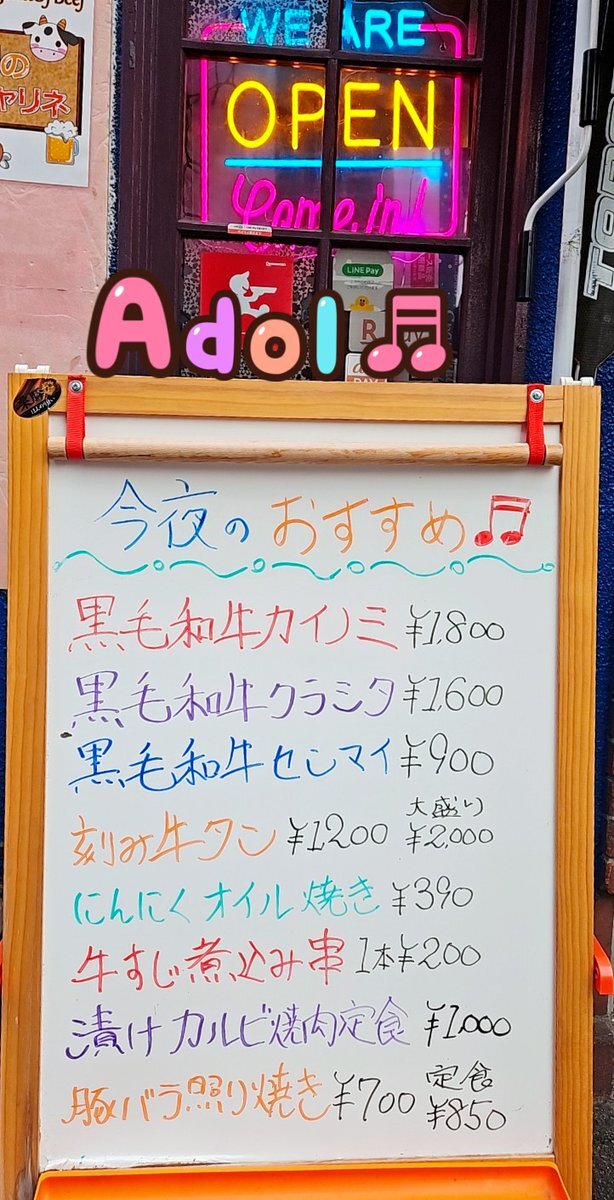 の
ャリネ
WE ARE
OPEN
Come in!
LINE Pay
Adol
今夜の おすすめ
黒毛和牛カイノミ ¥1,800
黒毛和牛クラシタ ¥1,600
黒毛和牛センマイ ¥900
刻み牛タン ¥1200 大盛り ¥2,000
にんにくオイル焼き ¥390
牛すじ煮込み串 1本¥200
漬けカルビ焼肉定食 ¥1,000
豚バラ照り焼き ¥700 定食 ¥850